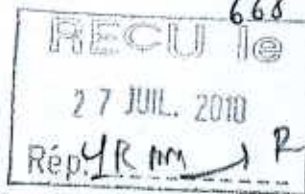 668
REÇU le
27 JUIL. 2010
Rép.